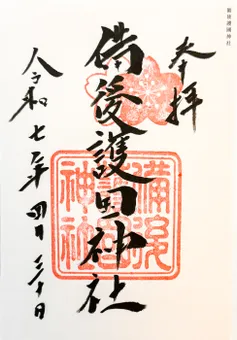 備後護國神社
奉拝
備後護国神社
備後護國神社
令和七年四月三十日